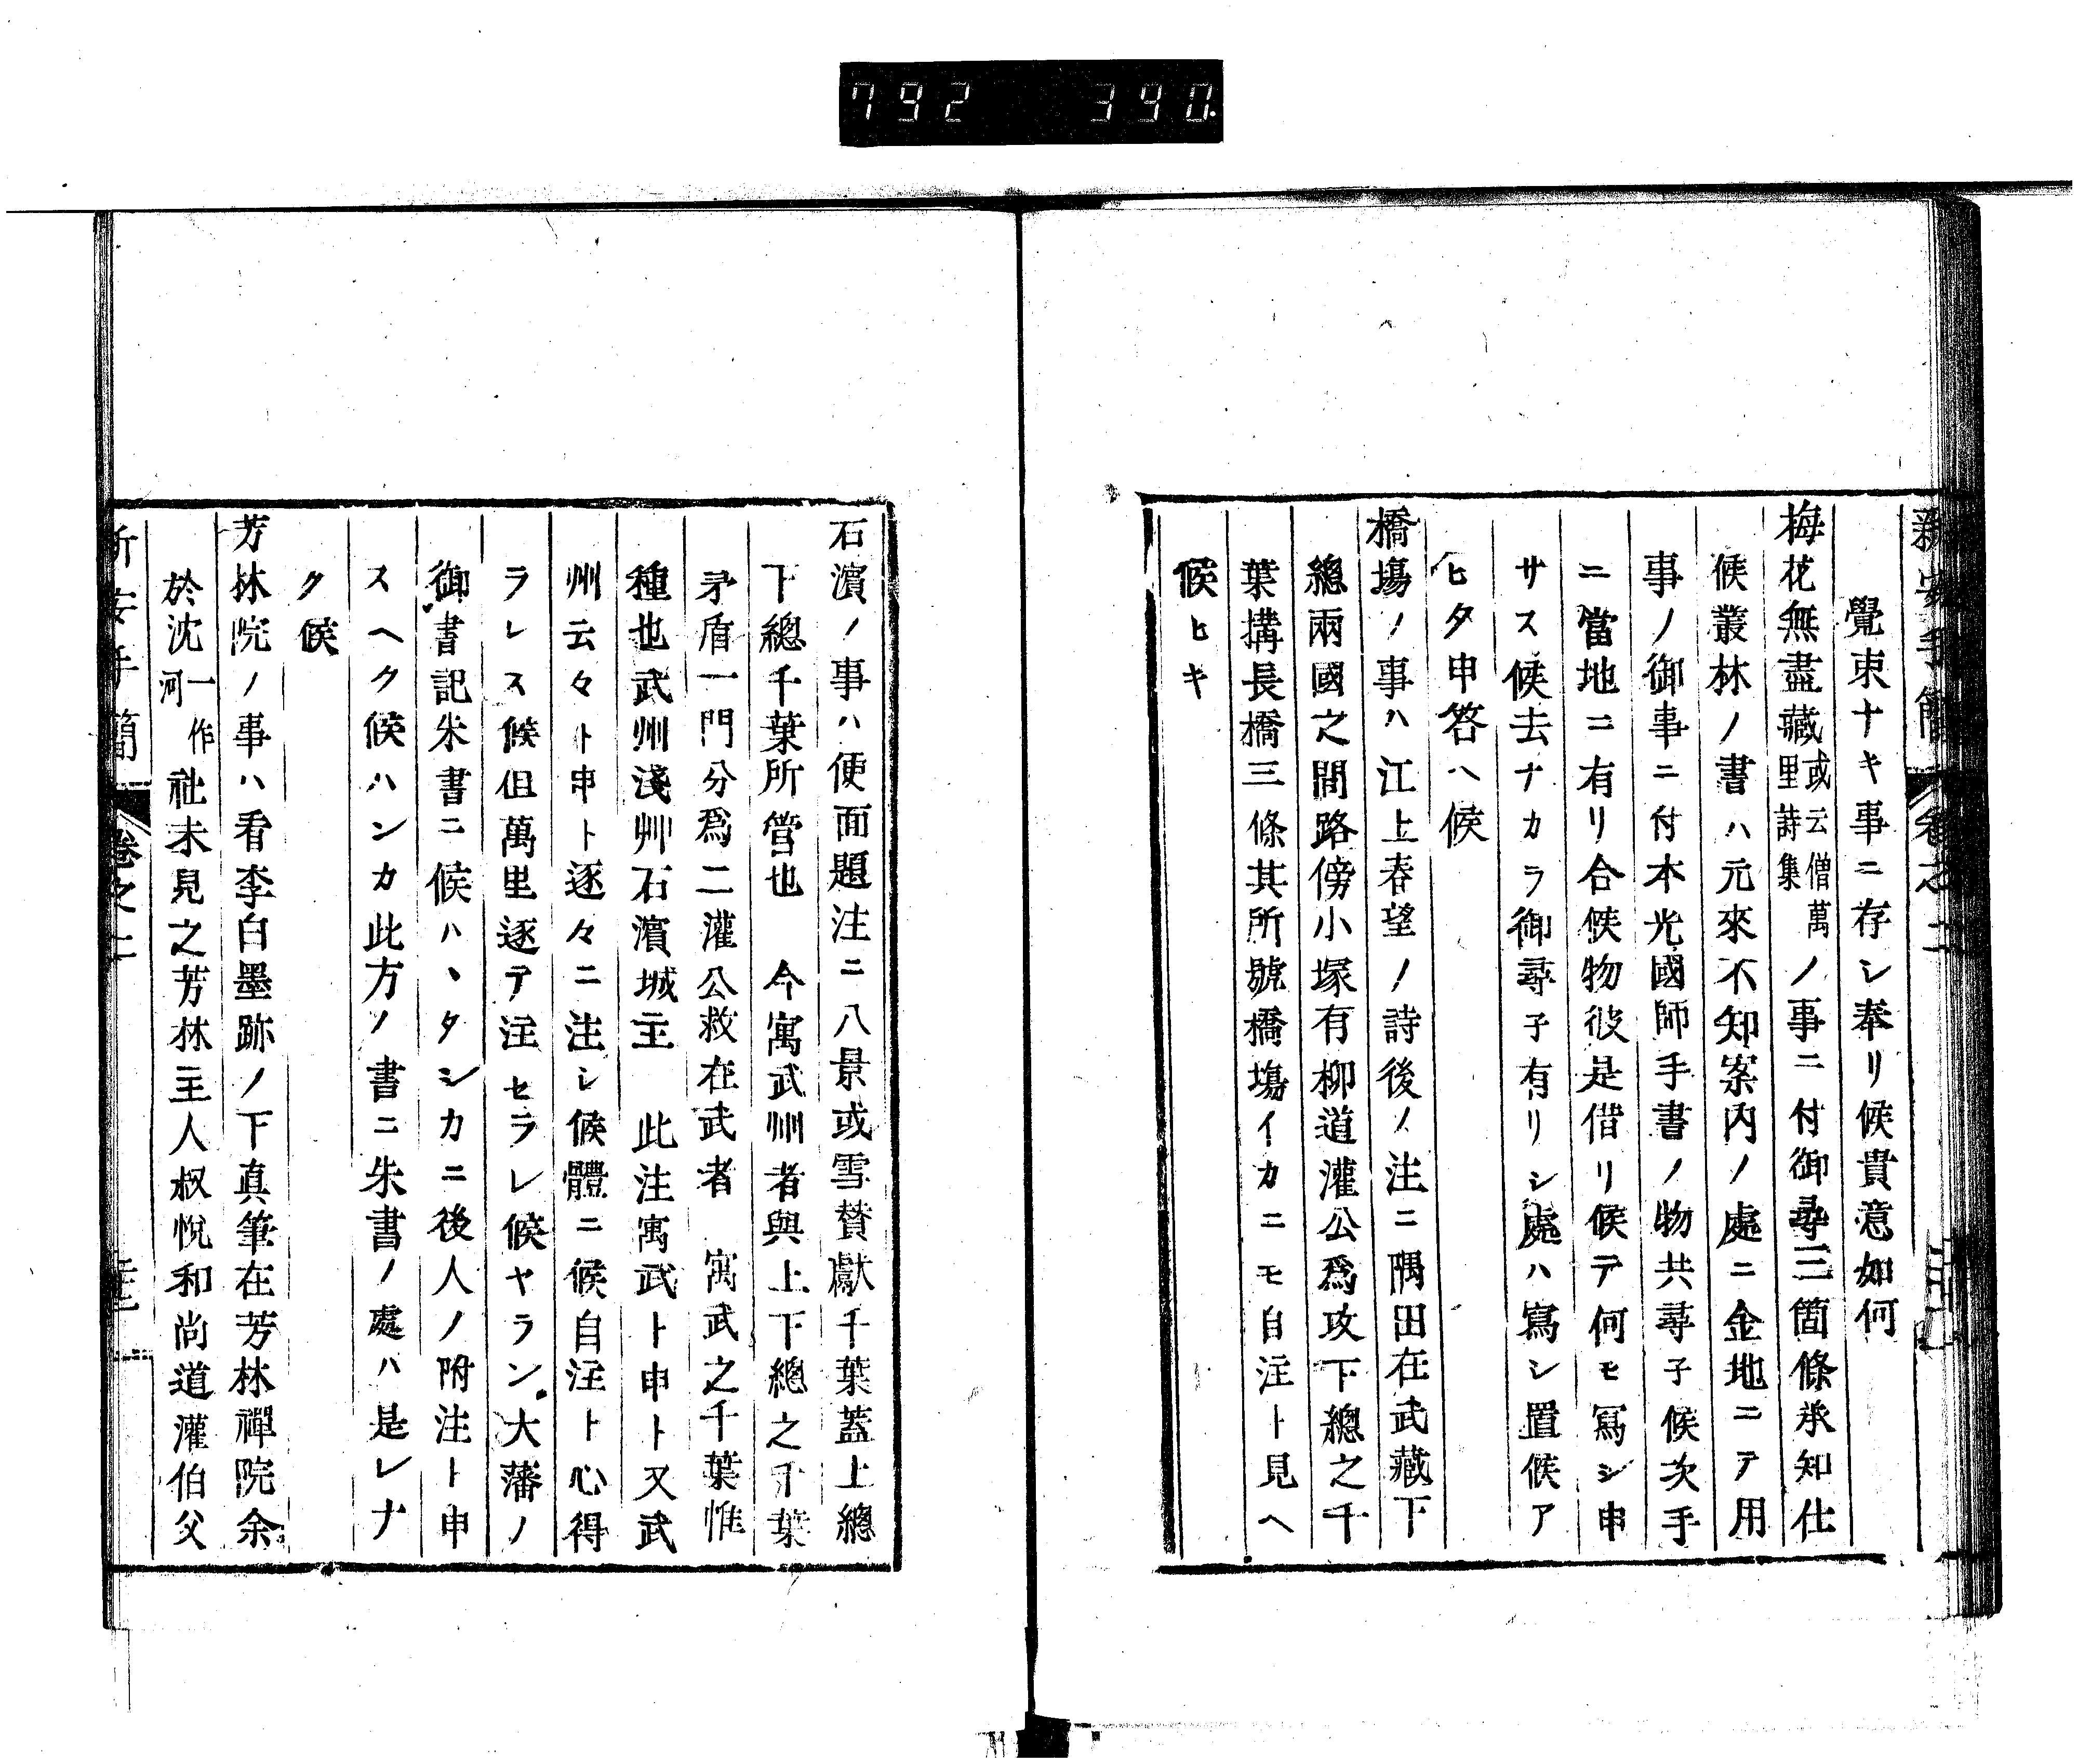 792 390.
新安手簡 卷之二
覺束ナキ事ニ存シ奉リ候貴意如何
梅花無盡藏或云僧萬里詩集ノ事ニ付御尋三箇條承知仕
候叢林ノ書ハ元來不知案内ノ處ニ金地ニテ用
事ノ御事ニ付本光國師手書ノ物共尋子候次手
ニ當地ニ有リ合候物彼是借リ候テ何モ寫シ申
サス候去ナカラ御尋子有リシ處ハ寫シ置候ア
ヒタ申答ヘ候
橋塲ノ事ハ江上春望ノ詩後ノ注ニ隅田在武藏下
總兩國之間路傍小塚有柳道灌公爲攻下總之千
葉搆長橋三條其所號橋塲イカニモ自注ト見ヘ
候ヒキ
石濱ノ事ハ便面題注ニ八景或雪賛獻千葉蓋上總
下總千葉所管也 今寓武州者與上下總之千葉
矛盾一門分爲二灌公救在武者 寓武之千葉惟
種也武州淺艸石濱城主 此注寓武ト申ト又武
州云々ト申ト逐々ニ注シ候體ニ候自注ト心得
ラレス候但萬里逐テ注セラレ候ヤラン大藩ノ
御書記朱書ニ候ハヽタシカニ後人ノ附注ト申
スヘク候ハンカ此方ノ書ニ朱書ノ處ハ是レナ
ク候
芳林院ノ事ハ看李白墨跡ノ下真筆在芳林禪院余
於沈一作河祉未見之芳林主人叔悅和尚道灌伯父
新安手簡 卷之二